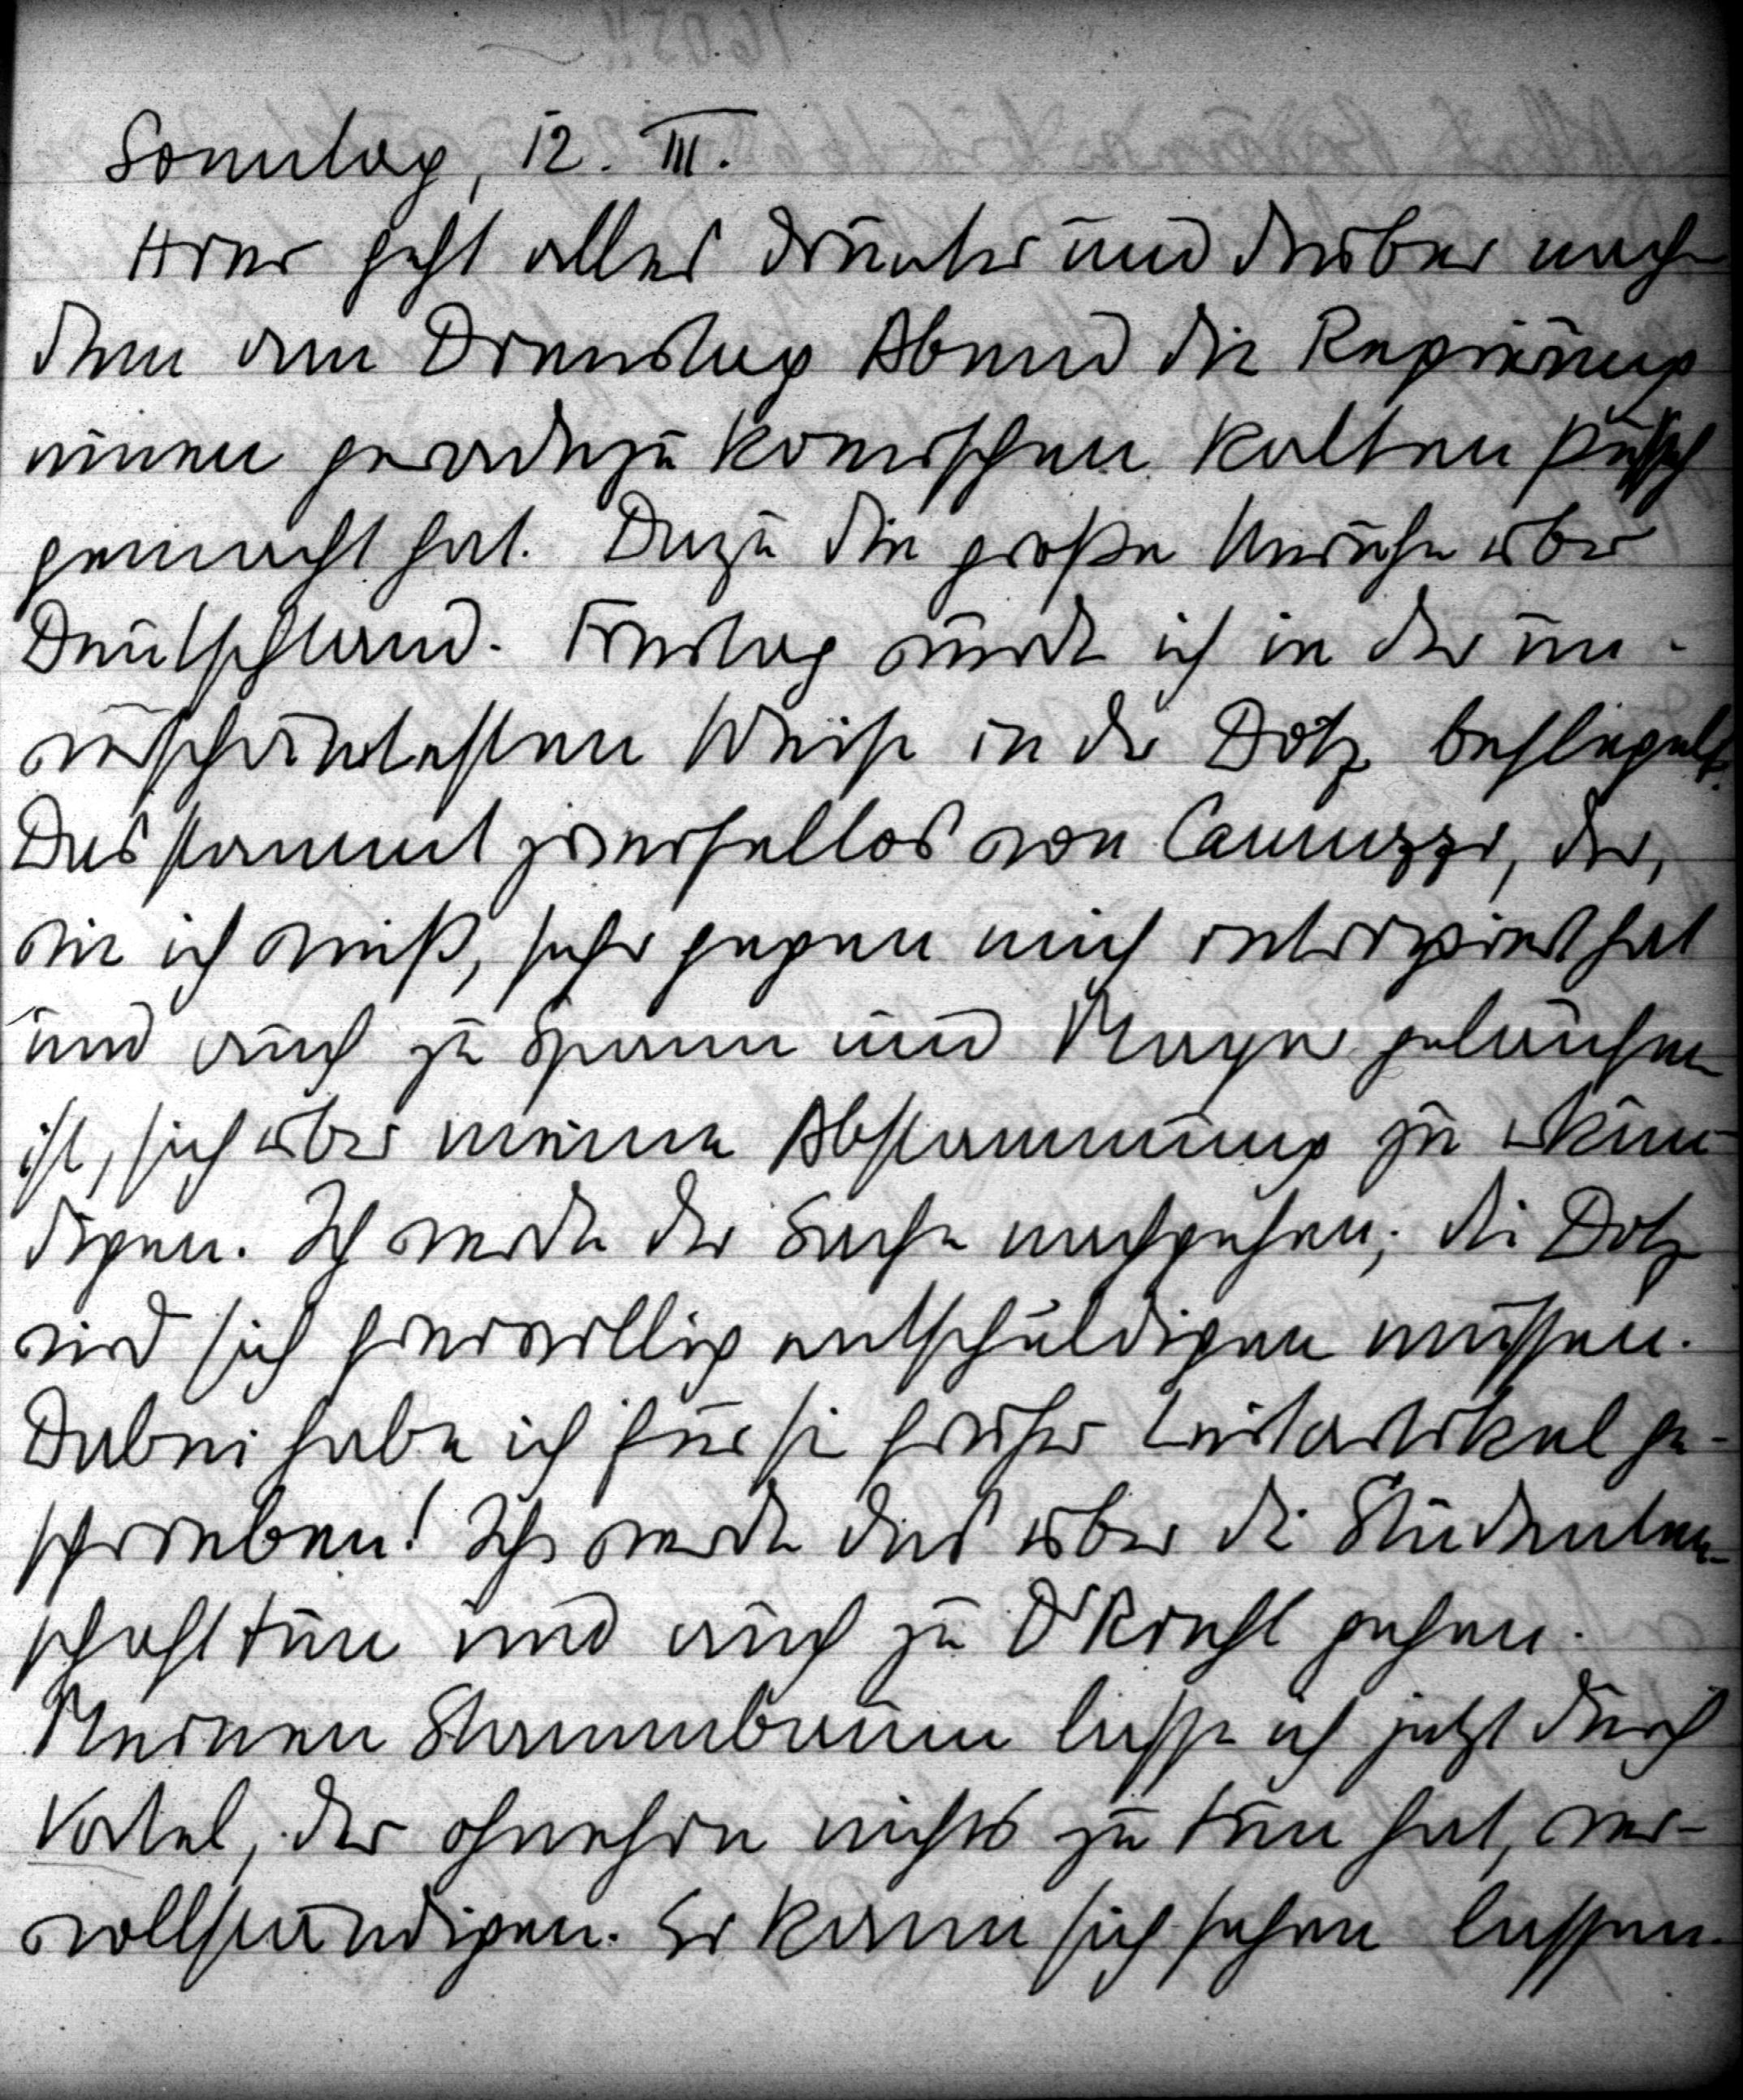 Sonntag, 12. III.
Hier geht alles drunter und drüber nach
dem am Dienstag Abend die Regierung
einen geradezu komischen kalten Putsch
gemacht hat. Dazu die große Unruhe über
Deutschland. Freitag wurde ich in der un-
verschämtesten Weise in der Dötz beflegelt.
Das stammt zweifellos von Camuzzi, der,
wie ich weiß, sehr gegen mich intrigiert hat
und auch zu Spann und Mayer gelaufen
ist, sich über meine Abstammung zu erkun-
digen. Ich werde der Sache nachgehen; die Dötz
wird sich freiwillig entschuldigen müssen.
Dabei habe ich für sie früher Leitartikel ge-
schrieben! Ich werde das über die Studenten-
schaft tun und auch zu Dr Riehl gehen.
Meinen Stammbaum lasse ich jetzt durch
der ohnehin nichts zu tun hat, ver-
vollständigen. Er kann sich sehen lassen.